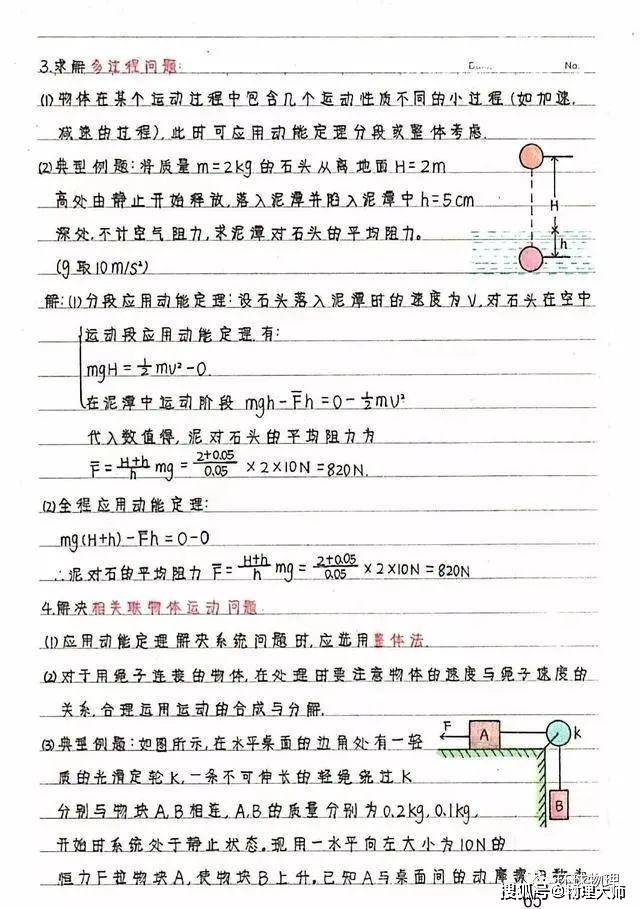 3.求解多过程问题:
No.
(1)物体在某个运动过程中包含几个运动性质不同的小过程(如加速,
减速的过程),此时可应用动能定理分段或整体考虑.
(2)典型例题:将质量m=2kg的石头从离地面H=2m
高处由静止开始释放,落入泥潭并陷入泥潭中h=5cm
深处,不计空气阻力,求泥潭对石头的平均阻力。
(g取10m/s²)
H
h
解:(1)分段应用动能定理:设石头落入泥潭时的速度为V,对石头在空中
运动段应用动能定理.有:
mgH=½mv²-0.
在泥潭中运动阶段 mgh-F̄h=0-½mv²
代入数值得,泥对石头的平均阻力为
F̄=(H+h)/h mg=(2+0.05)/0.05×2×10N=820N.
(2)全程应用动能定理:
mg(H+h)-F̄h=0-0
∴泥对石的平均阻力 F̄=(H+h)/h mg=(2+0.05)/0.05×2×10N=820N
4.解决相关联物体运动问题
(1)应用动能定理解决系统问题时,应选用整体法.
(2)对于用绳子连接的物体,在处理时要注意物体的速度与绳子速度的
关系,合理运用运动的合成与分解.
(3)典型例题:如图所示,在水平桌面的边角处有一轻
质的光滑定轮K,一条不可伸长的轻绳绕过K
分别与物块A,B相连,A,B的质量分别为0.2kg,0.1kg,
开始时系统处于静止状态。现用一水平向左大小为10N的
恒力F拉物块A,使物块B上升。已知A与桌面间的动摩擦因数
F
A
K
B
搜狐号@物理大师
65